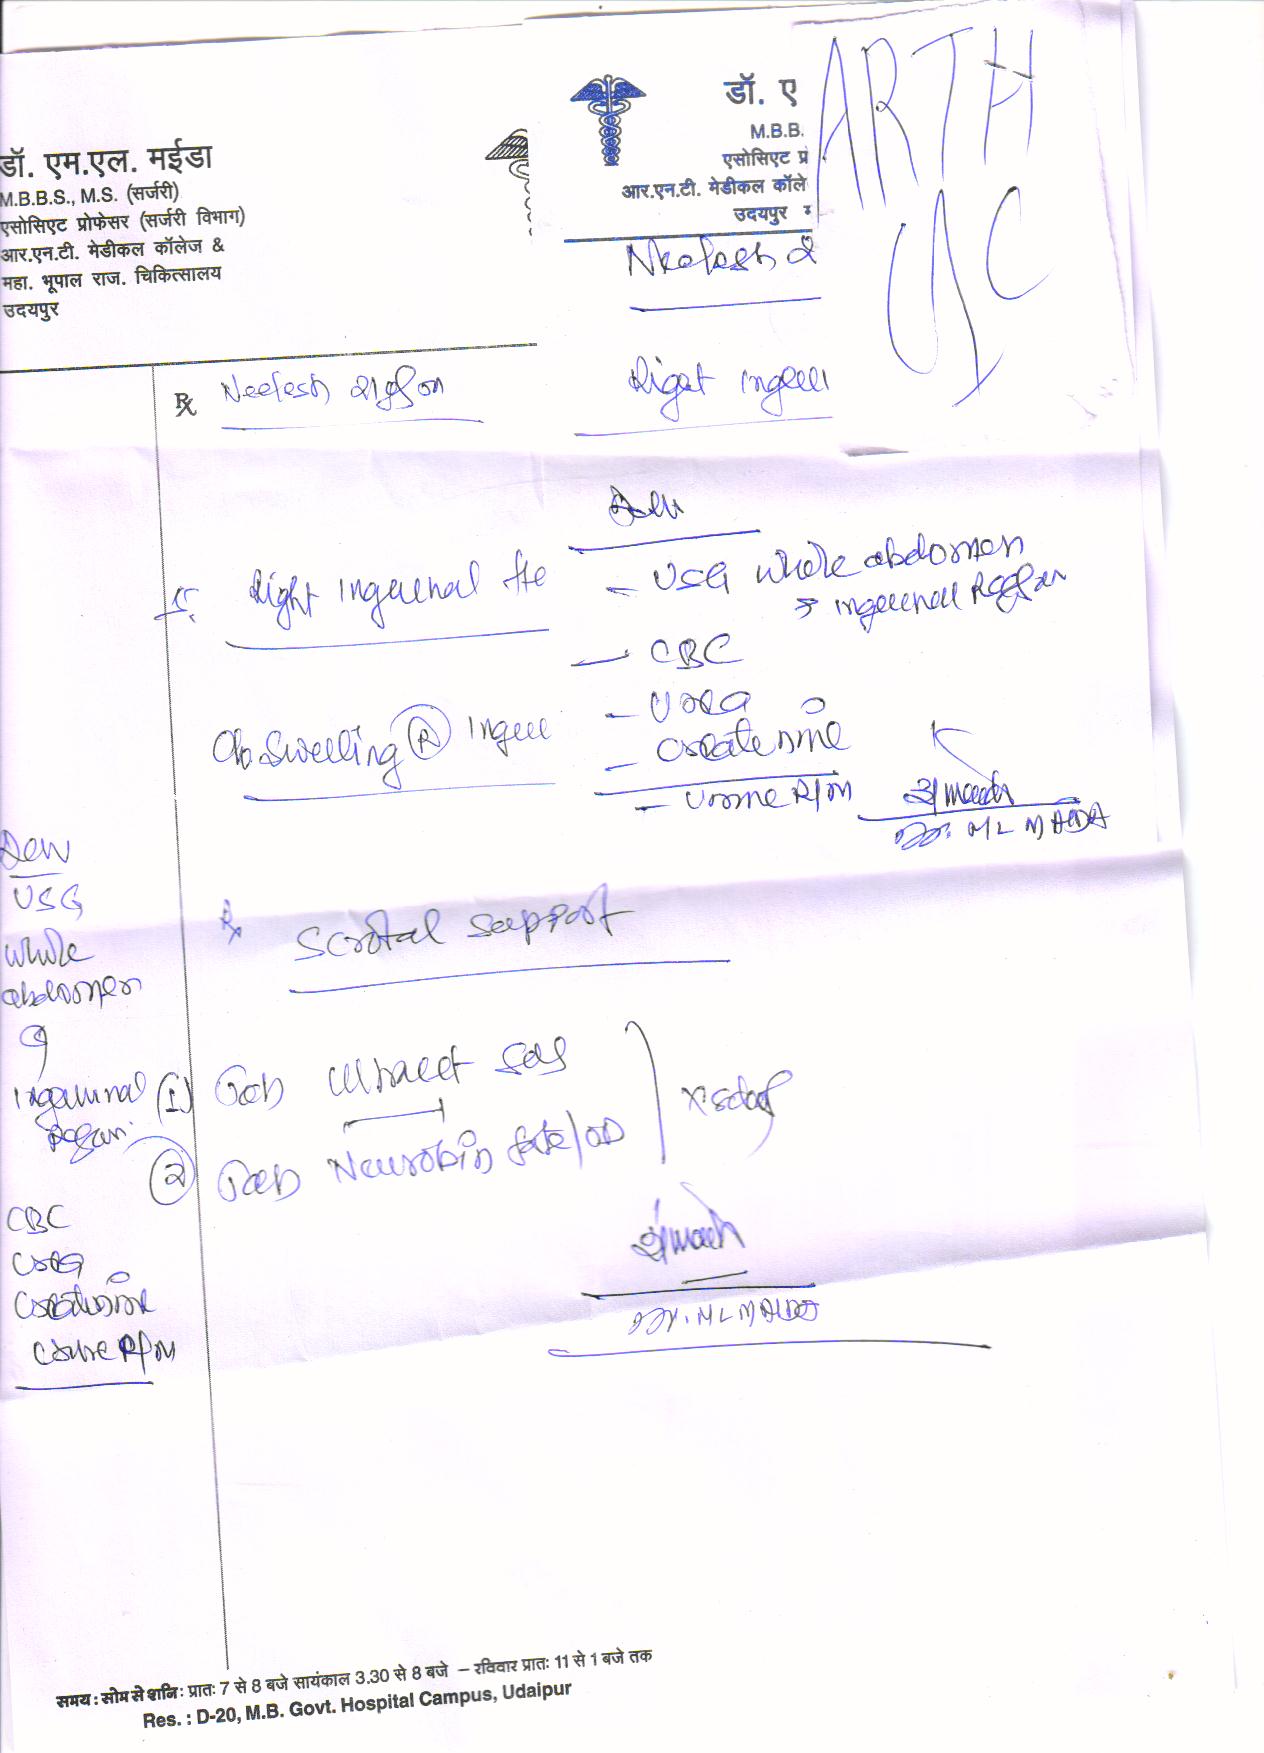 डॉ. एम.एल. मईडा
M.B.B.S., M.S. (सर्जरी)
एसोसिएट प्रोफेसर (सर्जरी विभाग)
आर.एन.टी. मेडीकल कॉलेज &
महा. भूपाल राज. चिकित्सालय
उदयपुर
डॉ. ए
M.B.B.
एसोसिएट प्र
आर.एन.टी. मेडीकल कॉले
उदयपुर
ARTH
USC
Neelesh
Right Ingui
Rx Neelesh
Right Inguinal He
c/o Swelling (R) Ingui
Adv
- USG whole abdomen
Inguinal Region
- CBC
- Urea
- Creatinine
- Urine R/M
Dr. ML MAIDA
Adv
USG
whole
abdomen
Inguinal
Region
CBC
Urea
Creatinine
Urine R/M
Rx
Scrotal support
(1) Tab
(2) Tab Neurobin forte/OD
Dr. ML MAIDA
समय : सोम से शनि : प्रातः 7 से 8 बजे सायंकाल 3.30 से 8 बजे – रविवार प्रातः 11 से 1 बजे तक
Res. : D-20, M.B. Govt. Hospital Campus, Udaipur